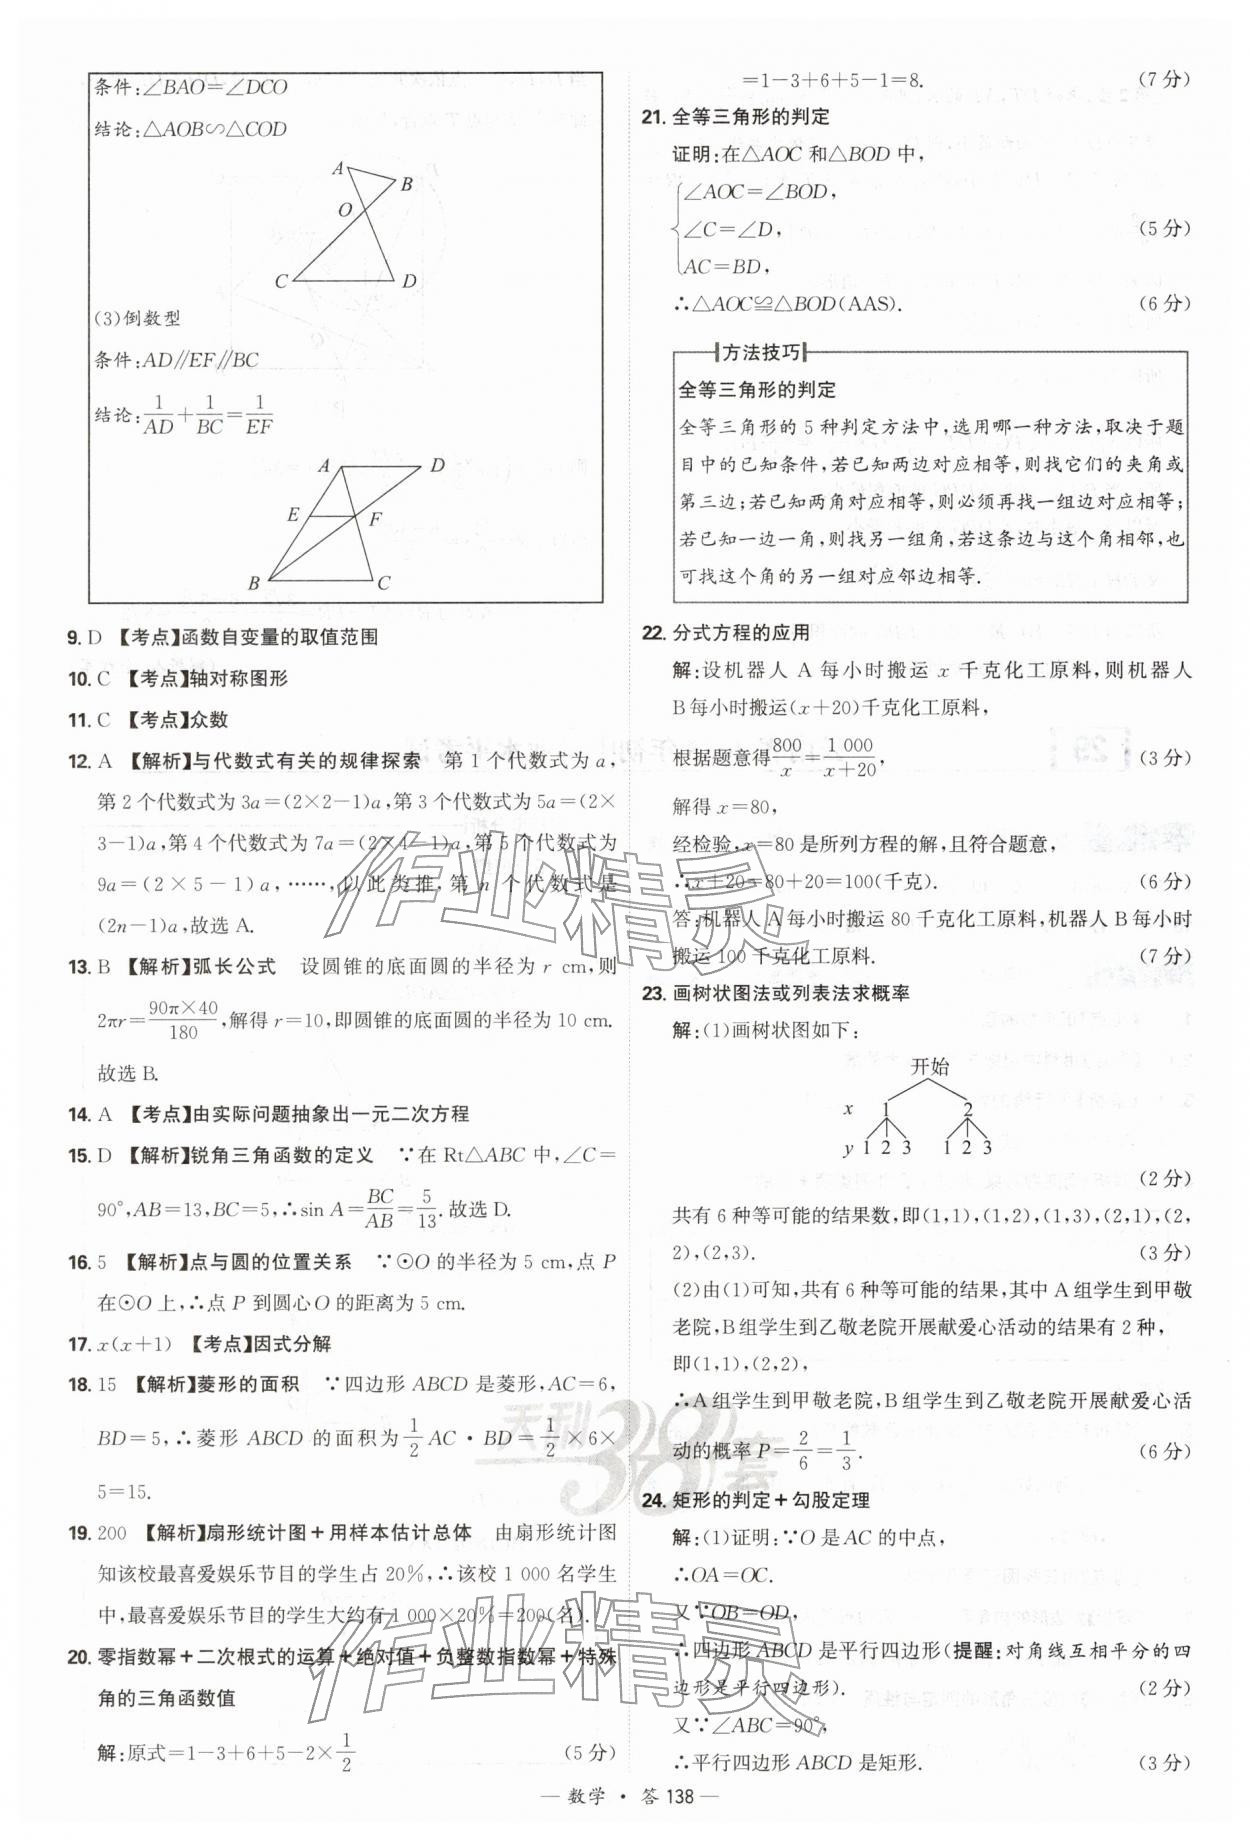 条件:∠BAO=∠DCO
结论:△AOB∽△COD
A
B
O
C
D
(3)倒数型
条件:AD∥EF∥BC
结论:1/AD+1/BC=1/EF
A
D
E
F
B
C
9. D 【考点】函数自变量的取值范围
10. C 【考点】轴对称图形
11. C 【考点】众数
12. A 【解析】与代数式有关的规律探索 第1个代数式为a,
第2个代数式为3a=(2×2-1)a,第3个代数式为5a=(2×
3-1)a,第4个代数式为7a=(2×4-1)a,第5个代数式为
9a=(2×5-1)a,……,以此类推,第n个代数式是
(2n-1)a,故选A.
13. B 【解析】弧长公式 设圆锥的底面圆的半径为r cm,则
2πr=90π×40/180,解得r=10,即圆锥的底面圆的半径为10 cm.
故选B.
14. A 【考点】由实际问题抽象出一元二次方程
15. D 【解析】锐角三角函数的定义 ∵在Rt△ABC中,∠C=
90°,AB=13,BC=5,∴sin A=BC/AB=5/13.故选D.
16. 5 【解析】点与圆的位置关系 ∵⊙O的半径为5 cm,点P
在⊙O上,∴点P到圆心O的距离为5 cm.
17. x(x+1) 【考点】因式分解
18. 15 【解析】菱形的面积 ∵四边形ABCD是菱形,AC=6,
BD=5,∴菱形ABCD的面积为1/2 AC·BD=1/2×6×
5=15.
19. 200 【解析】扇形统计图+用样本估计总体 由扇形统计图
知该校最喜爱娱乐节目的学生占20%,∴该校1 000名学生
中,最喜爱娱乐节目的学生大约有1 000×20%=200(名).
20. 零指数幂+二次根式的运算+绝对值+负整数指数幂+特殊
角的三角函数值
解:原式=1-3+6+5-2×1/2 (5分)
=1-3+6+5-1=8. (7分)
21. 全等三角形的判定
证明:在△AOC和△BOD中,
∠AOC=∠BOD,
∠C=∠D, (5分)
AC=BD,
∴△AOC≌△BOD(AAS). (6分)
方法技巧
全等三角形的判定
全等三角形的5种判定方法中,选用哪一种方法,取决于题
目中的已知条件,若已知两边对应相等,则找它们的夹角或
第三边;若已知两角对应相等,则必须再找一组边对应相等;
若已知一边一角,则找另一组角,若这条边与这个角相邻,也
可找这个角的另一组对应邻边相等.
22. 分式方程的应用
解:设机器人A每小时搬运x千克化工原料,则机器人
B每小时搬运(x+20)千克化工原料,
根据题意得800/x=1 000/(x+20), (3分)
解得x=80,
经检验,x=80是所列方程的解,且符合题意,
∴x+20=80+20=100(千克). (6分)
答:机器人A每小时搬运80千克化工原料,机器人B每小时
搬运100千克化工原料. (7分)
23. 画树状图法或列表法求概率
解:(1)画树状图如下:
开始
x 1 2
y 1 2 3 1 2 3
(2分)
共有6种等可能的结果数,即(1,1),(1,2),(1,3),(2,1),(2,
2),(2,3). (3分)
(2)由(1)可知,共有6种等可能的结果,其中A组学生到甲敬
老院,B组学生到乙敬老院开展献爱心活动的结果有2种,
即(1,1),(2,2),
∴A组学生到甲敬老院,B组学生到乙敬老院开展献爱心活
动的概率P=2/6=1/3. (6分)
24. 矩形的判定+勾股定理
解:(1)证明:∵O是AC的中点,
∴OA=OC.
又∵OB=OD,
∴四边形ABCD是平行四边形(提醒:对角线互相平分的四
边形是平行四边形). (2分)
又∵∠ABC=90°,
∴平行四边形ABCD是矩形. (3分)
作业精灵
天利38套
作业精灵
— 数学 · 答138 —